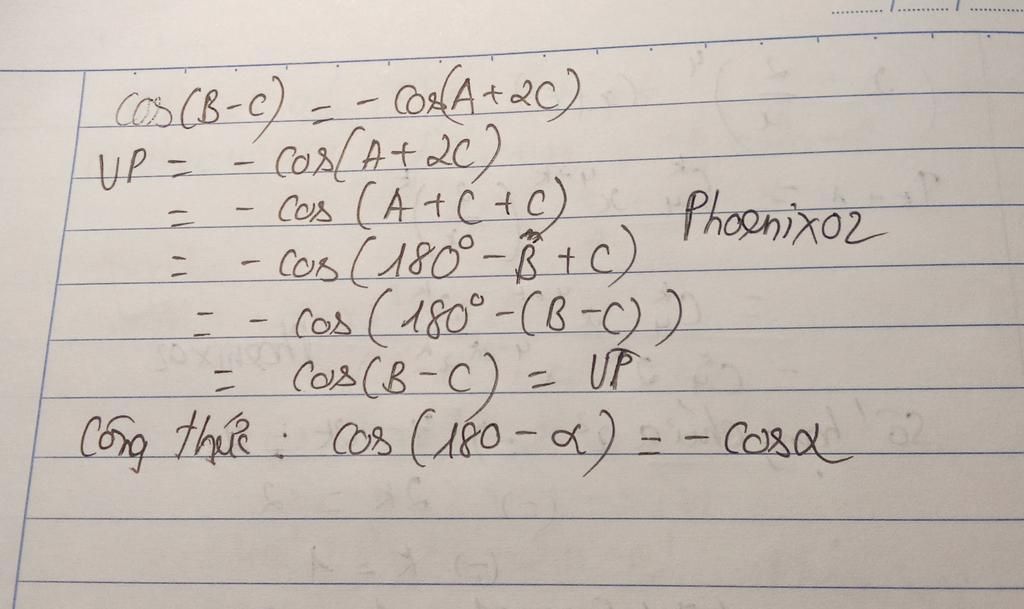 cos(B-C) = - cos(A+2C)
VP = - cos(A+2C)
= - cos (A+C+C)
Phoenix02
= - cos(180° - B + C)
= - cos(180° - (B-C))
= cos(B-C) = VT
Công thức : cos(180 - α) = - cosα